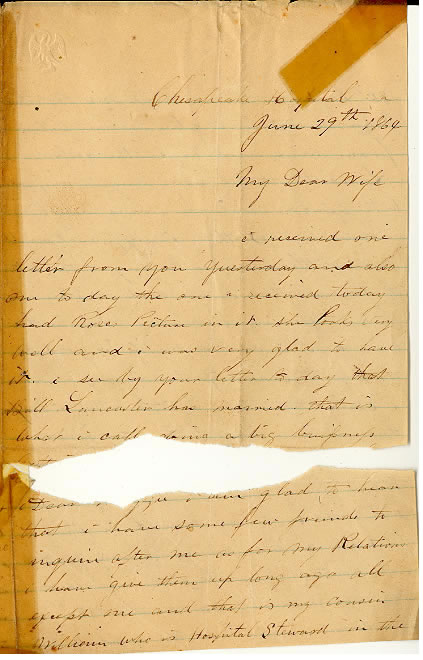 Chesapeake Hospital Va
June 29th 1864
My Dear Wife
i reseved one
letter from you yuesterday and also
one to day the one i reseved today
had Roses Picture in it. she looks very
well and i was very glad to have
it. i see by your letter to day that
Will Lancaster has married. that is
what i call doing a big buisness
Dear i am glad to hear
that i have some few friends to
inquire after me as for my Relations
i have give them up long ago all
except one and that is my cousin
William who is Hospital Steward in the